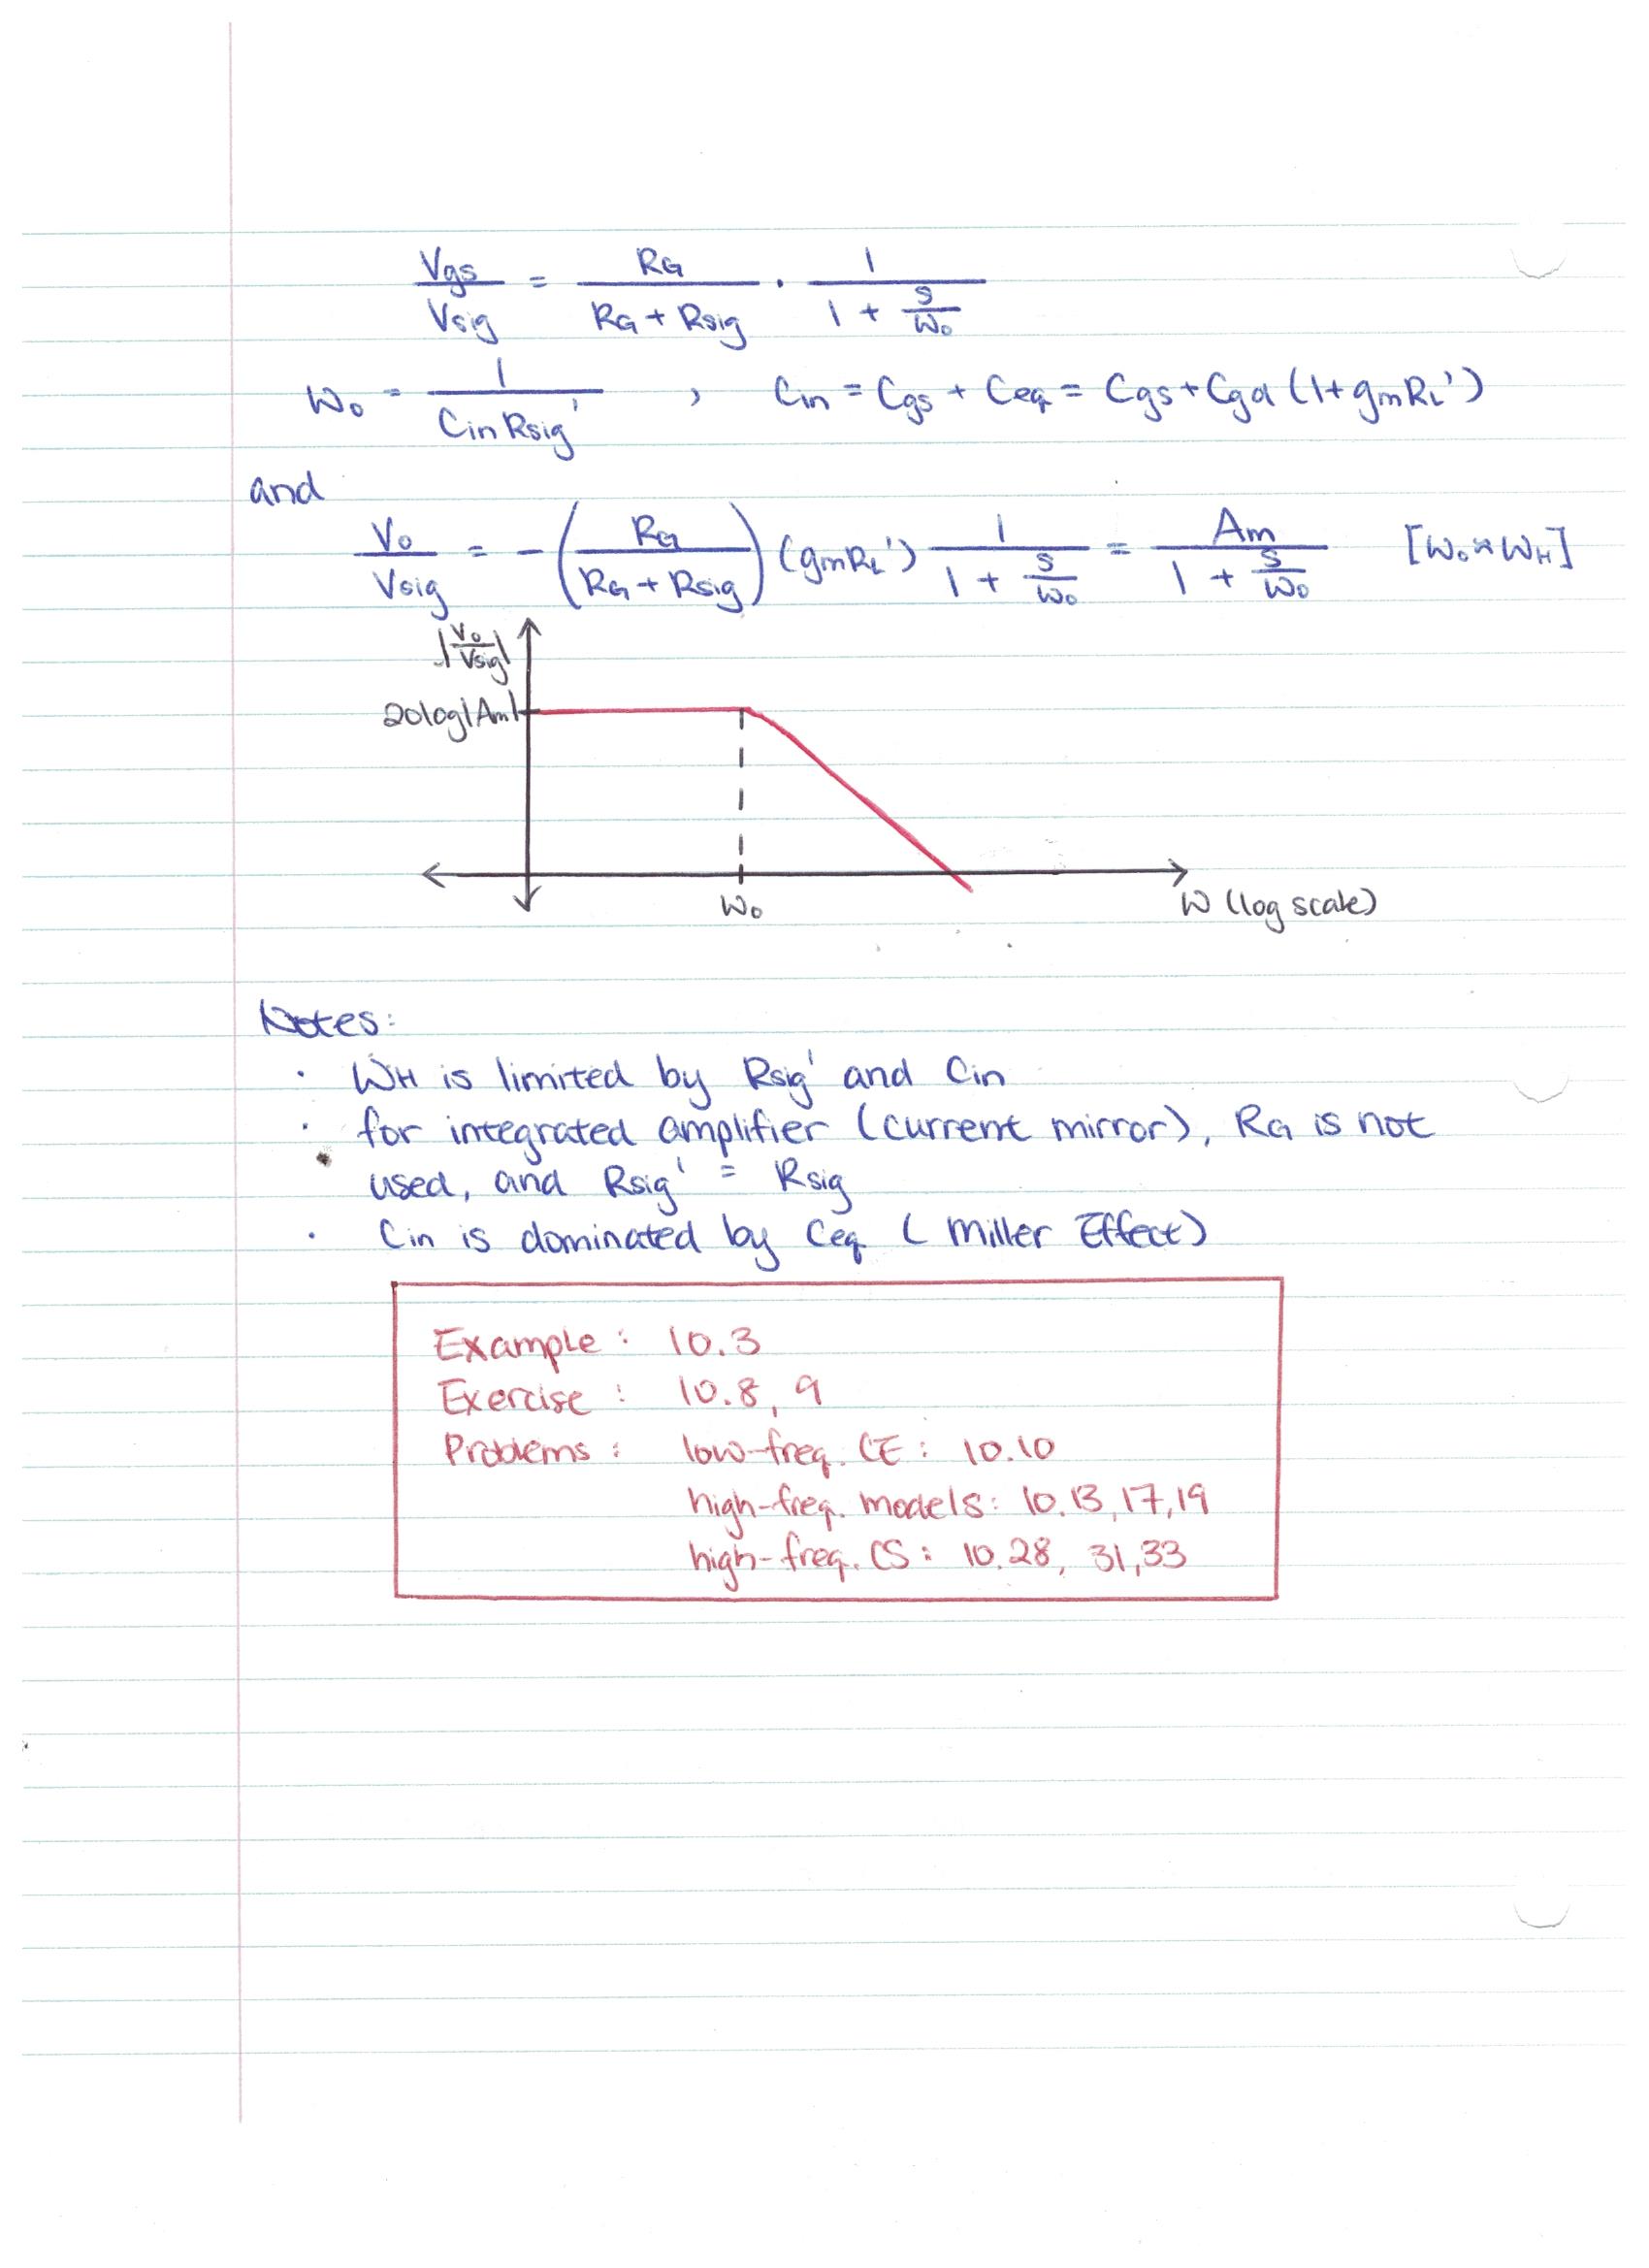 Vgs/Vsig = RG/(RG + Rsig) · 1/(1 + s/ω0)
ω0 = 1/(Cin Rsig') , Cin = Cgs + Ceq = Cgs + Cgd (1 + gmRL')
and
Vo/Vsig = -(RG/(RG + Rsig)) (gmRL') 1/(1 + s/ω0) = Am/(1 + s/ω0) [ω0 ≈ ωH]
|Vo/Vsig|
20log|Am|
ω0
ω (log scale)
Notes:
· ωH is limited by Rsig' and Cin
· for integrated amplifier (current mirror), RG is not
used, and Rsig' = Rsig
· Cin is dominated by Ceq (Miller Effect)
Example : 10.3
Exercise : 10.8, 9
Problems : low-freq. CE : 10.10
high-freq. models : 10.13, 17, 19
high-freq. CS : 10.28, 31, 33